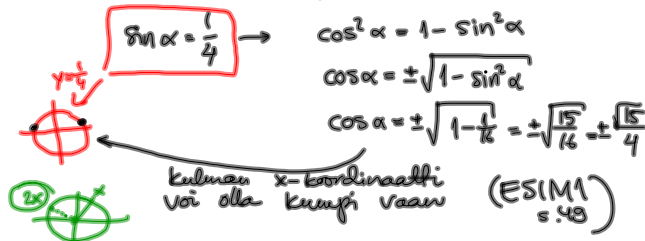 sin α = 1/4 → cos² α = 1 - sin² α
y = 1/4
cos α = ±√(1 - sin² α)
cos α = ±√(1 - 1/16) = ±√(15/16) = ±√15/4
kulman x-koordinaatti
voi olla kumpi vaan
(ESIM1
s.49)
2x
x